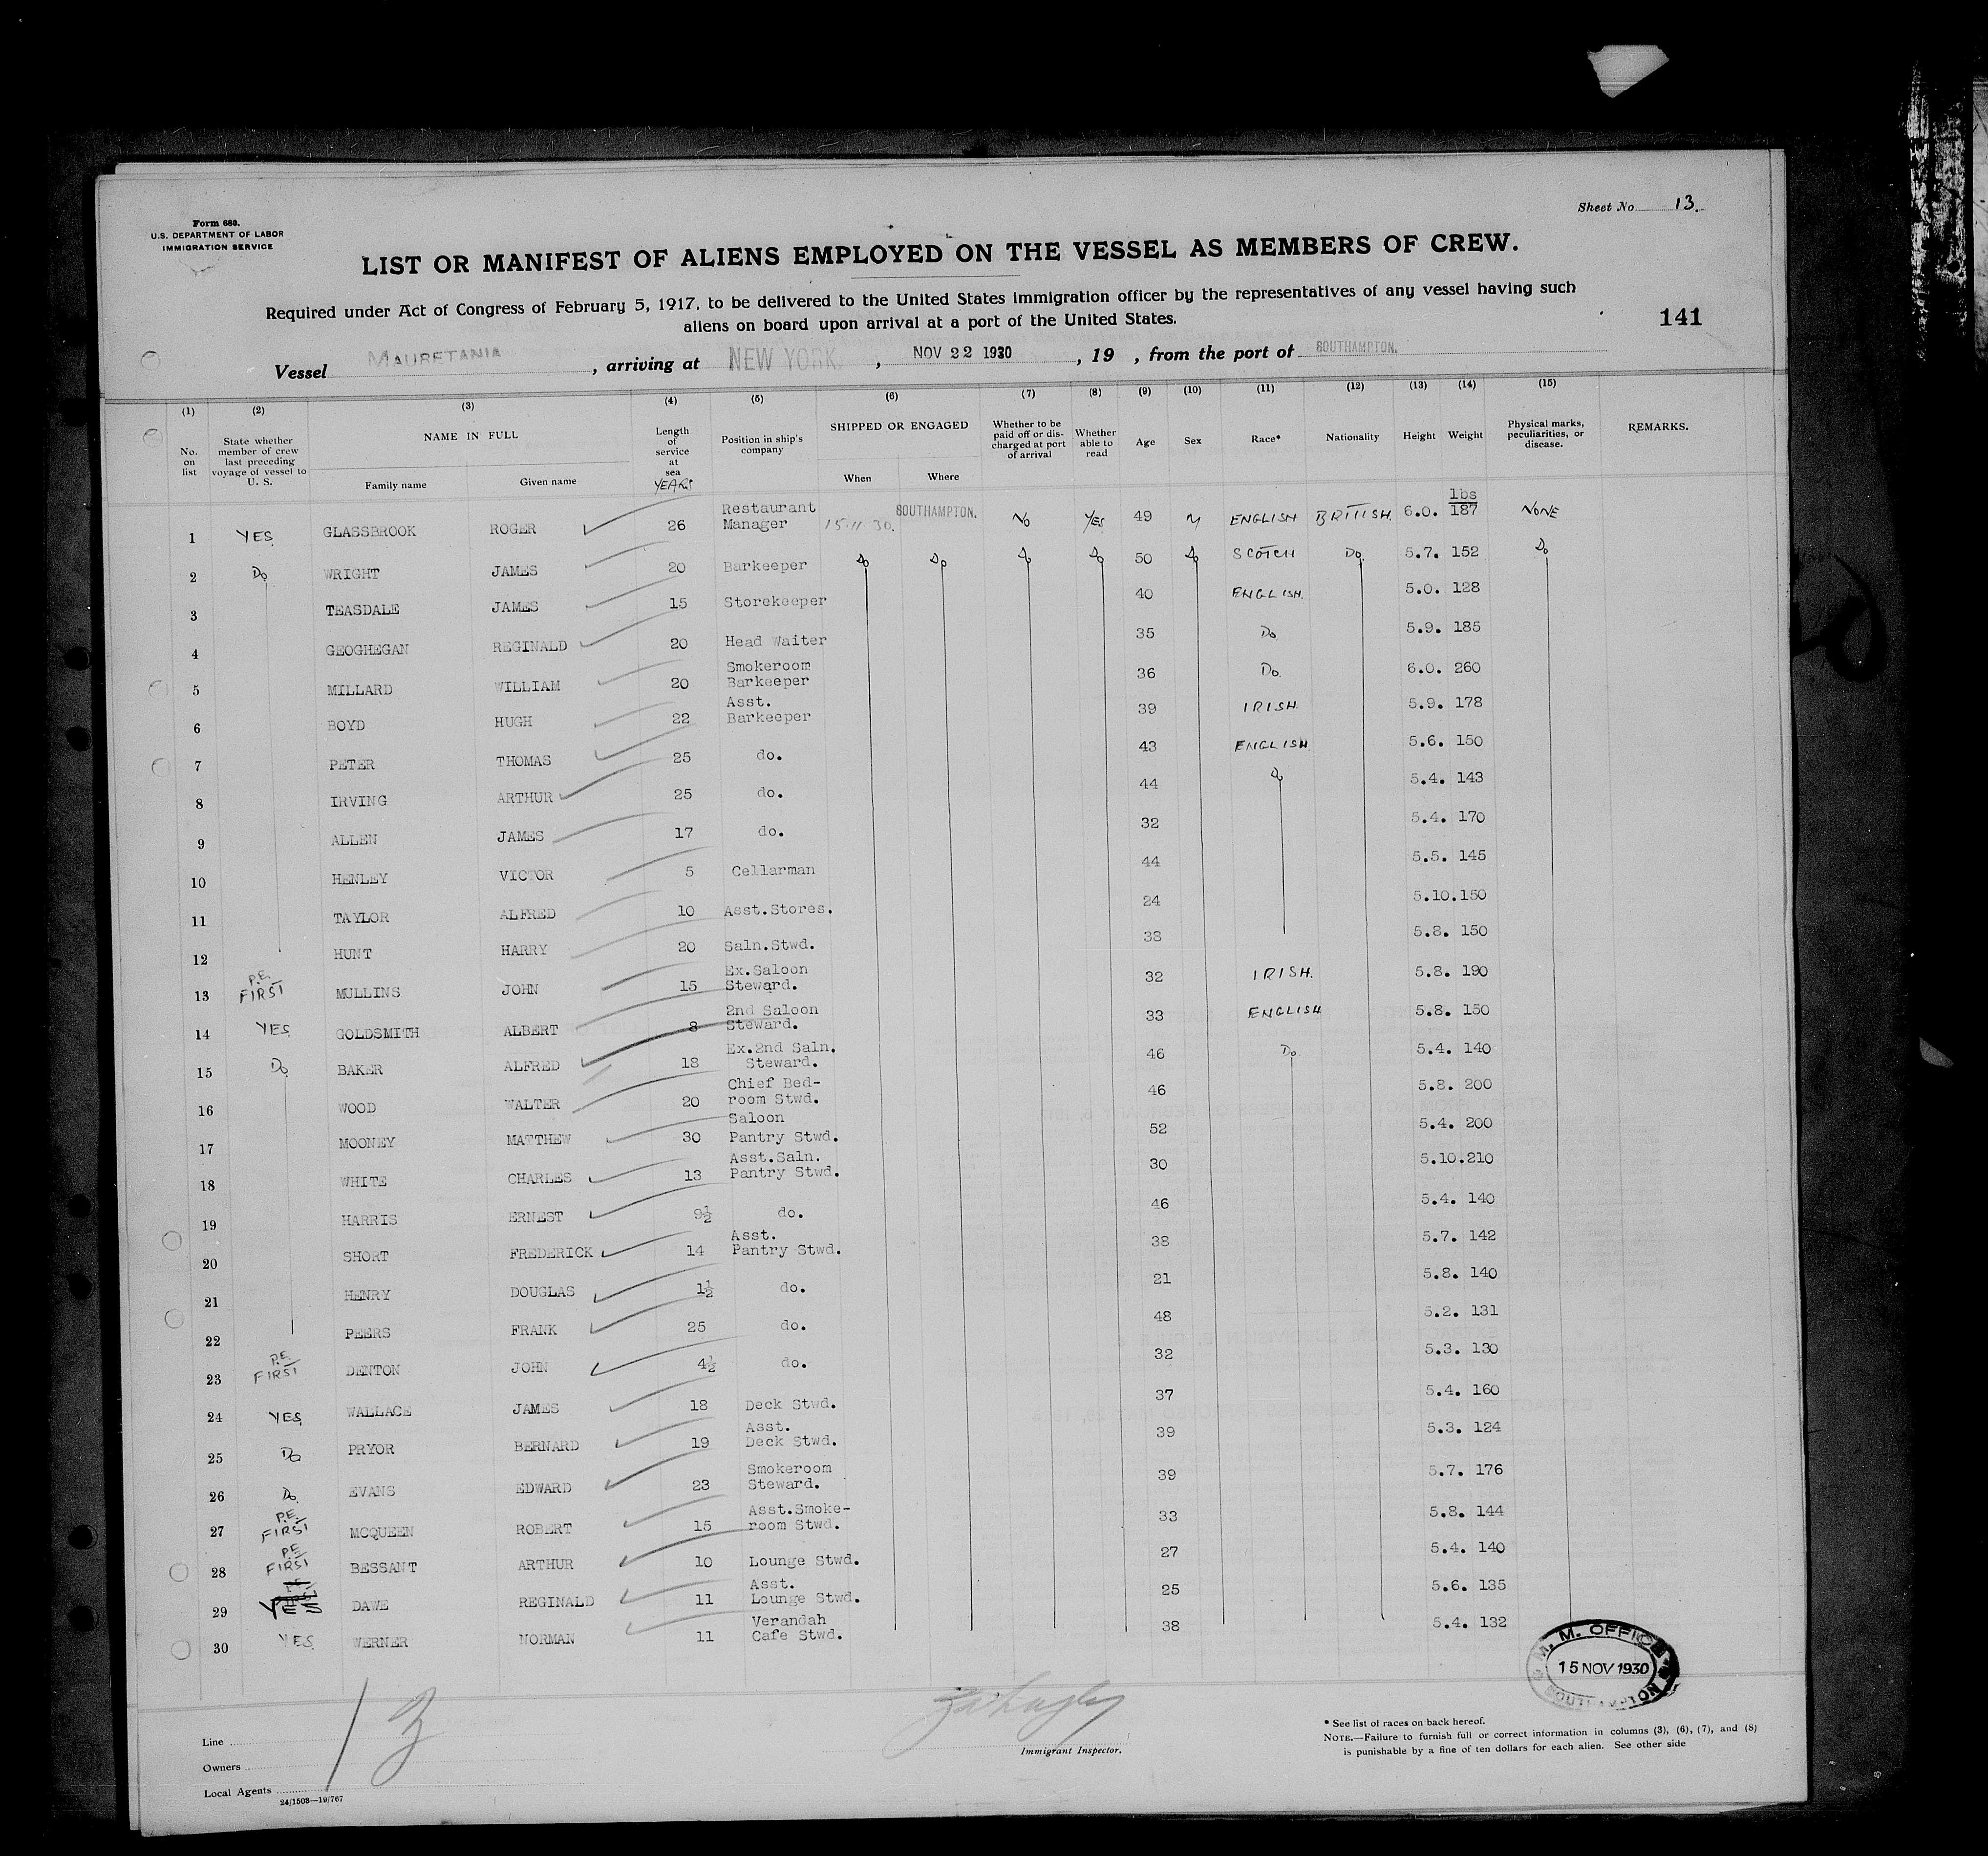 Form 680.
U.S. DEPARTMENT OF LABOR
IMMIGRATION SERVICE
Sheet No. 13.
LIST OR MANIFEST OF ALIENS EMPLOYED ON THE VESSEL AS MEMBERS OF CREW.
Required under Act of Congress of February 5, 1917, to be delivered to the United States immigration officer by the representatives of any vessel having such
aliens on board upon arrival at a port of the United States.
141
Vessel MAURETANIA, arriving at NEW YORK, NOV 22 1930, 19 , from the port of SOUTHAMPTON.
(1) (2) (3) (4) (5) (6) (7) (8) (9) (10) (11) (12) (13) (14) (15)
No. on list
State whether member of crew last preceding voyage of vessel to U. S.
NAME IN FULL
Family name
Given name
Length of service at sea
YEARS
Position in ship's company
SHIPPED OR ENGAGED
When
Where
Whether to be paid off or discharged at port of arrival
Whether able to read
Age
Sex
Race*
Nationality
Height
Weight
Physical marks, peculiarities, or disease.
REMARKS.
lbs
1 YES GLASSBROOK ROGER 26 Restaurant Manager 15.11.30. SOUTHAMPTON. No YES 49 M ENGLISH BRITISH 6.0. 187 NONE
2 Do WRIGHT JAMES 20 Barkeeper Do Do Do Do 50 Do SCOTCH Do. 5.7. 152 Do
3 TEASDALE JAMES 15 Storekeeper 40 ENGLISH. 5.0. 128
4 GEOGHEGAN REGINALD 20 Head Waiter 35 Do 5.9. 185
5 MILLARD WILLIAM 20 Smokeroom Barkeeper 36 Do 6.0. 260
6 BOYD HUGH 22 Asst. Barkeeper 39 IRISH. 5.9. 178
7 PETER THOMAS 25 do. 43 ENGLISH 5.6. 150
8 IRVING ARTHUR 25 do. 44 Do 5.4. 143
9 ALLEN JAMES 17 do. 32 5.4. 170
10 HENLEY VICTOR 5 Cellarman 44 5.5. 145
11 TAYLOR ALFRED 10 Asst.Stores. 24 5.10.150
12 HUNT HARRY 20 Saln.Stwd. 38 5.8. 150
13 P.E. FIRST MULLINS JOHN 15 Ex.Saloon Steward. 32 IRISH. 5.8. 190
14 YES GOLDSMITH ALBERT 8 2nd Saloon Steward. 33 ENGLISH 5.8. 150
15 Do BAKER ALFRED 18 Ex.2nd Saln. Steward. 46 Do. 5.4. 140
16 WOOD WALTER 20 Chief Bed-room Stwd. 46 5.8. 200
17 MOONEY MATTHEW 30 Saloon Pantry Stwd. 52 5.4. 200
18 WHITE CHARLES 13 Asst.Saln. Pantry Stwd. 30 5.10.210
19 HARRIS ERNEST 9½ do. 46 5.4. 140
20 SHORT FREDERICK 14 Asst. Pantry Stwd. 38 5.7. 142
21 HENRY DOUGLAS 1½ do. 21 5.8. 140
22 PEERS FRANK 25 do. 48 5.2. 131
23 P.E. FIRST DENTON JOHN 4½ do. 32 5.3. 130
24 YES WALLACE JAMES 18 Deck Stwd. 37 5.4. 160
25 Do PRYOR BERNARD 19 Asst. Deck Stwd. 39 5.3. 124
26 Do. EVANS EDWARD 23 Smokeroom Steward. 39 5.7. 176
27 P.E. FIRST MCQUEEN ROBERT 15 Asst.Smoke-room Stwd. 33 5.8. 144
28 P.E. FIRST BESSANT ARTHUR 10 Lounge Stwd. 27 5.4. 140
29 YES DAWE REGINALD 11 Asst. Lounge Stwd. 25 5.6. 135
30 YES WERNER NORMAN 11 Verandah Cafe Stwd. 38 5.4. 132
M. M. OFFICE
15 NOV 1930
SOUTHAMPTON
Line
Owners
Local Agents
24/1503—19/767
Immigrant Inspector.
* See list of races on back hereof.
NOTE.—Failure to furnish full or correct information in columns (3), (6), (7), and (8)
is punishable by a fine of ten dollars for each alien. See other side